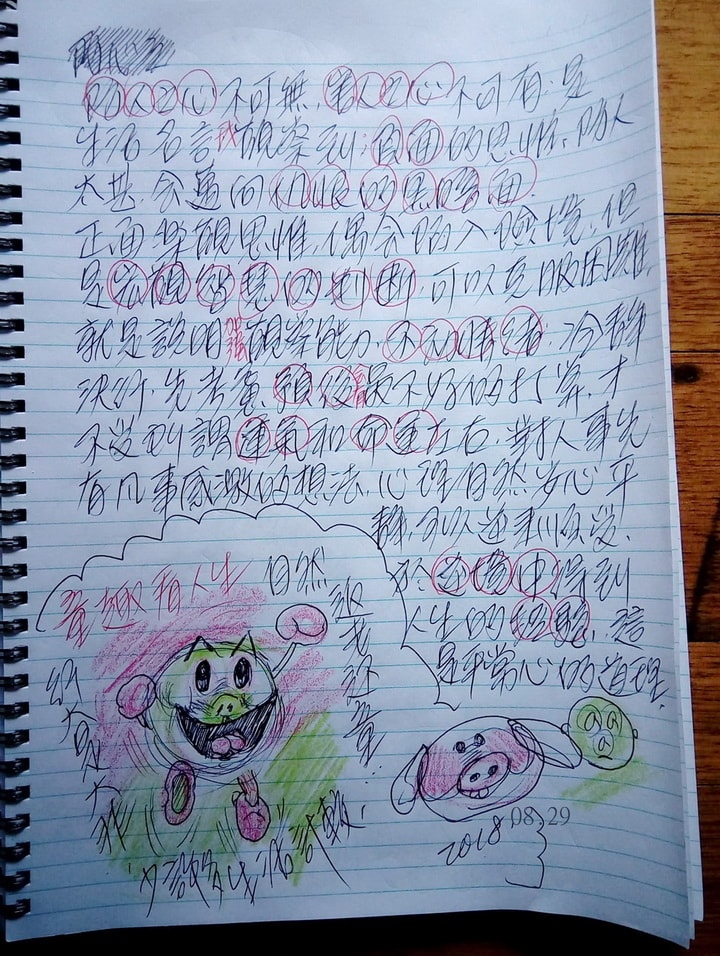 防人之心不可無,害人之心不可有:是
生活名言我觀察到:負面的思維,防人
太甚,會邁向仇恨的黑暗面.
正面樂觀思惟,偶會陷入險境,但
是客觀智慧的判斷,可以克服困難,
就是說明加強觀察能力,不動情緒:冷靜
決行,先考量,預後最不好的打算,才
不受到謂運氣和命運左右,對人事先
有凡事感激的想法,心理自然安心平
靜,可以逆來順受,
於逆境中得到
人生的經驗,這
是平常心的道理.
童趣看人生 自然
返老還童.
2018 08.29